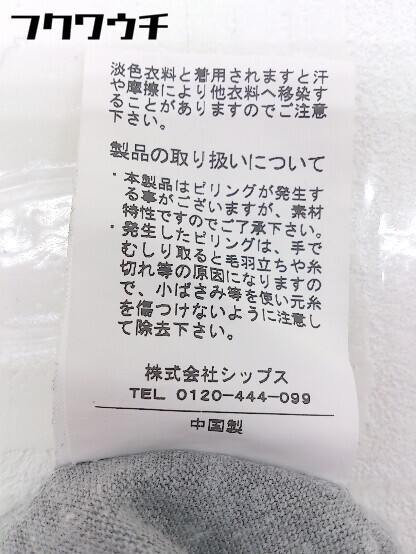 フクワウチ
淡色衣料と着用されますと汗
や摩擦により他衣料へ移染す
ることがありますのでご注意
下さい。
製品の取り扱いについて
・本製品はピリングが発生す
る事がございますが、素材
特性ですのでご了承下さい。
・発生したピリングは、手で
むしり取ると毛羽立ちや糸
切れ等の原因になりますの
で、小ばさみ等を使い元糸
を傷つけないように注意し
て除去下さい。
株式会社シップス
TEL 0120-444-099
中国製